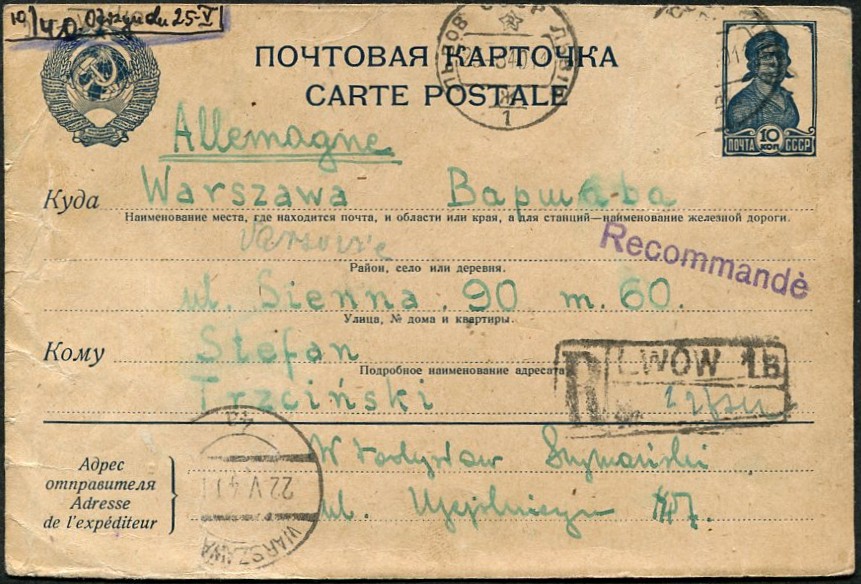 ПОЧТОВАЯ КАРТОЧКА
CARTE POSTALE
ЛЬВОВ СССР
1
10 КОП
ПОЧТА СССР
Allemagne
Куда Warszawa Варшава
Наименование места, где находится почта, и области или края, а для станций—наименование железной дороги.
Varsovie
Recommandè
Район, село или деревня.
ul. Sienna 90 m. 60.
Улица, № дома и квартиры.
Кому Stefan
Подробное наименование адресата
R LWÓW 1B
Trzciński
Адрес отправителя
Adresse de l'expéditeur
Władysław Szymański
ul.
22 V 41
WARSZAWA